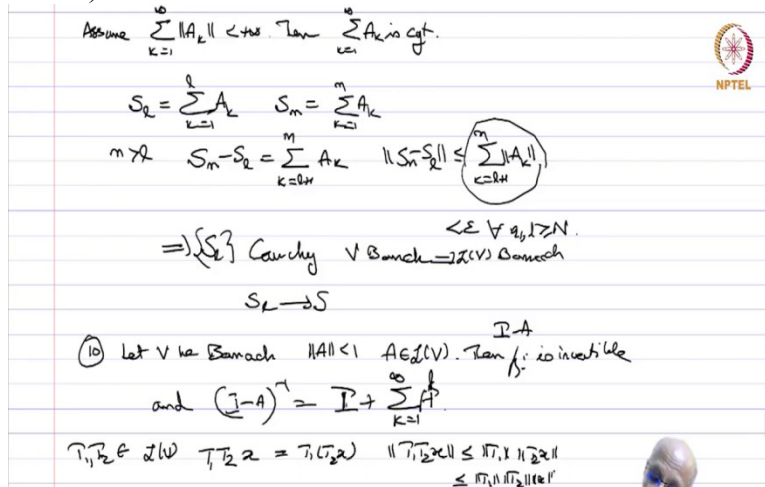 Assume ∑_{k=1}^{∞} ||A_k|| < +∞. Then ∑_{k=1}^{∞} A_k is cgt.
NPTEL
S_l = ∑_{k=1}^{l} A_k S_m = ∑_{k=1}^{m} A_k
m>l S_m-S_l = ∑_{k=l+1}^{m} A_k ||S_m-S_l|| ≤ ∑_{k=l+1}^{m} ||A_k||
<ε ∀ l≥N.
⇒{S_l} Cauchy V Banach ⇒ L(V) Banach
S_l → S
I-A
(10) Let V be Banach ||A||<1 A∈L(V). Then is invertible
and (I-A)^{-1} = I + ∑_{k=1}^{∞} A^k.
T_1,T_2 ∈ L(V) T_1T_2 x = T_1(T_2x) ||T_1T_2x|| ≤ ||T_1|| ||T_2x||
≤ ||T_1|| ||T_2|| ||x||